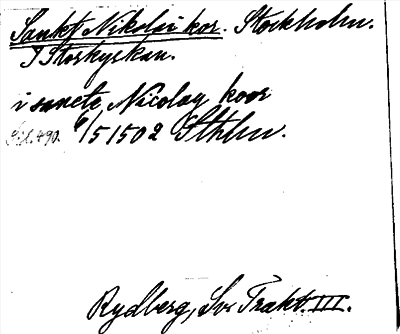 Sankt Nikolai kor. Stockholm.
I Storkyrkan.
i sancte Nicolay koor
S. 490. 6/5 1502 Sthlm.
Rydberg, Sv. Trakt. III.